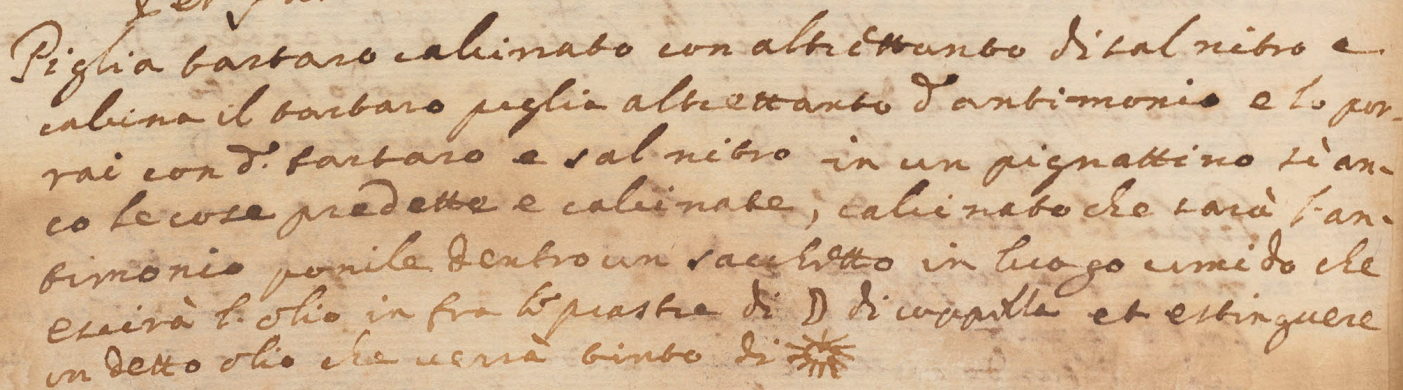 Piglia tartaro calcinato con altrettanto di sal nitro e
calcina il tartaro piglia altrettanto d'antimonio e lo por-
rai con d.º tartaro e sal nitro in un pignattino sì an-
co le cose predette e calcinate, calcinato che sarà l'an-
timonio ponile dentro un sacchetto in luogo umido che
escirà l'olio in fra le piastre di ☽ di coppella et estinguere
in detto olio che verrà tinto di ☀